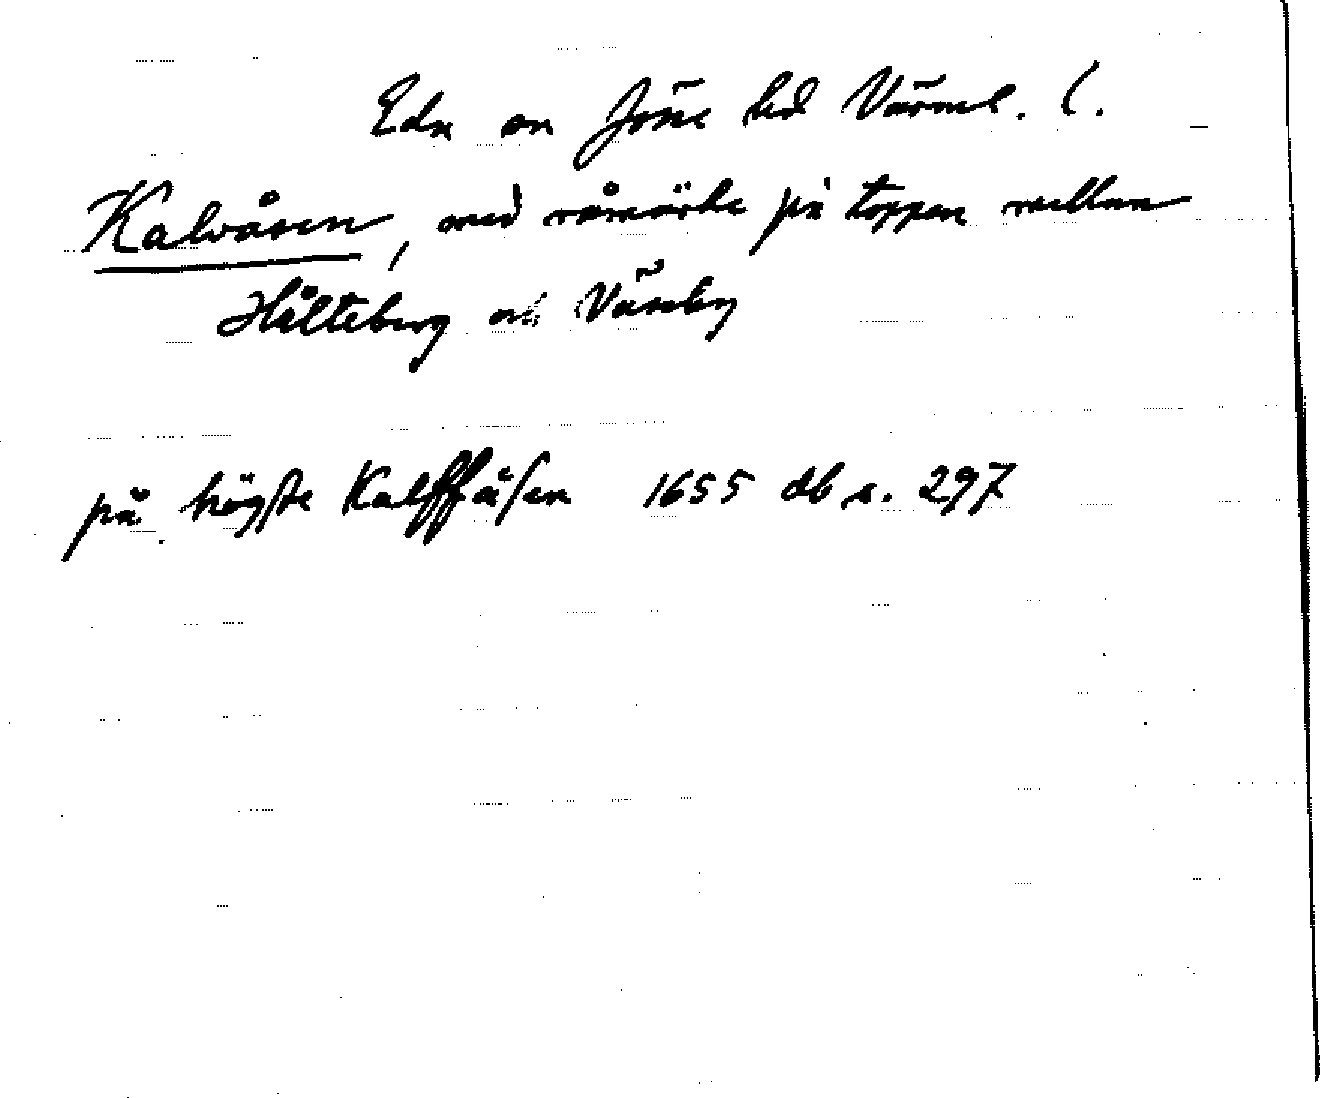 Eda sn Jösse hd Värml. l.
Kalvåsen, med råmärke på toppen mellan
Hålteberg och Vänsby
på högste Kalffåsen 1655 db s. 297